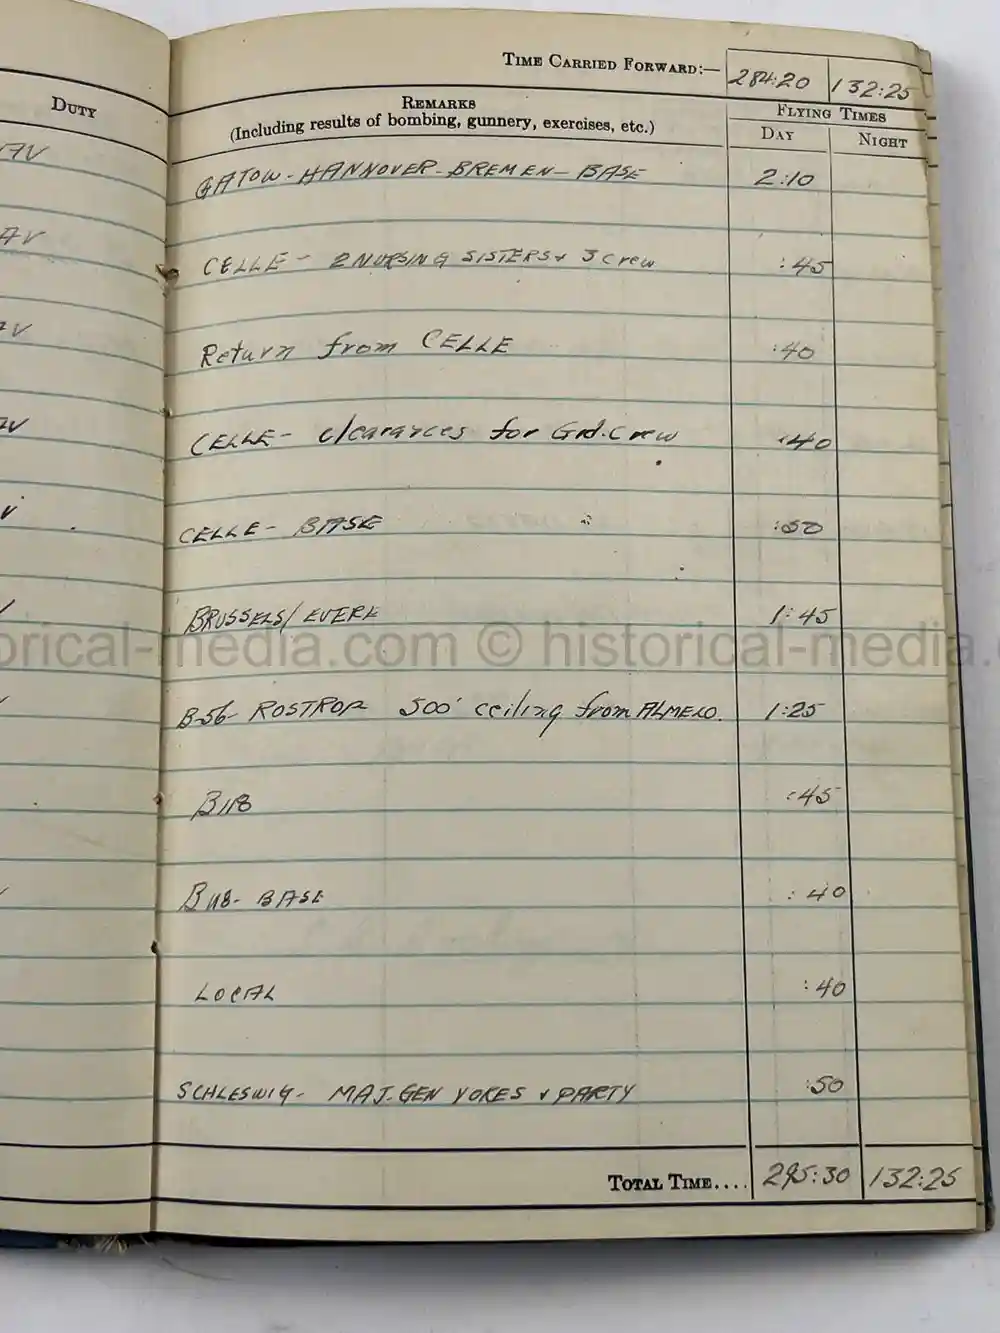 TIME CARRIED FORWARD:— 284:20 132:25
DUTY
REMARKS
(Including results of bombing, gunnery, exercises, etc.)
FLYING TIMES
DAY NIGHT
GATOW - HANNOVER - BREMEN - BASE 2:10
CELLE - 2 NURSING SISTERS + 3 Crew :45
Return from CELLE :40
CELLE - clearances for Grd. Crew :40
CELLE - BASE :50
BRUSSELS/EVERE 1:45
historical-media.com © historical-media.
B56- ROSTROP 500' ceiling from ALMELO. 1:25
B118 :45
B118- BASE :40
LOCAL :40
SCHLESWIG - MAJ-GEN VOKES + PARTY :50
TOTAL TIME.... 295:30 132:25